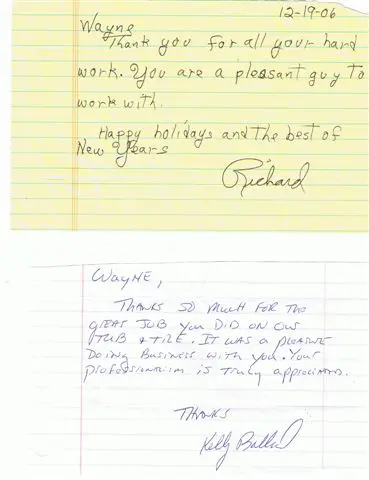 12-19-06
Wayne
Thank you for all your hard
work. You are a pleasant guy to
work with.
Happy holidays and the best of
New Years
Richard
WAYNE,
THANKS SO MUCH FOR THE
GREAT JOB YOU DID ON OUR
TUB & TILE. IT WAS A PLEASURE
DOING BUSINESS WITH YOU. YOUR
PROFESSIONALISM IS TRULY APPRECIATED.
THANKS
Kelly